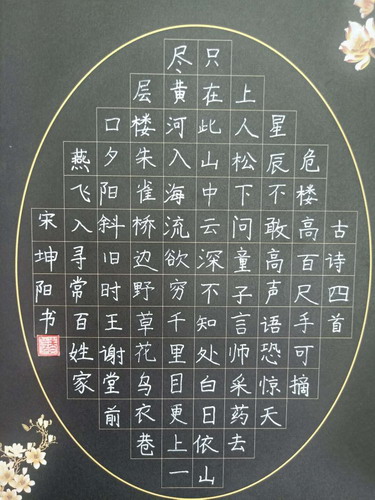 古诗四首
危楼高百尺手可摘
星辰不敢高声语恐惊天
上人松下问童子言师采药去
只在此山中云深不知处白日依山
尽黄河入海流欲穷千里目更上一
层楼朱雀桥边野草花乌衣巷
口夕阳斜旧时王谢堂前
燕飞入寻常百姓家
宋坤阳书